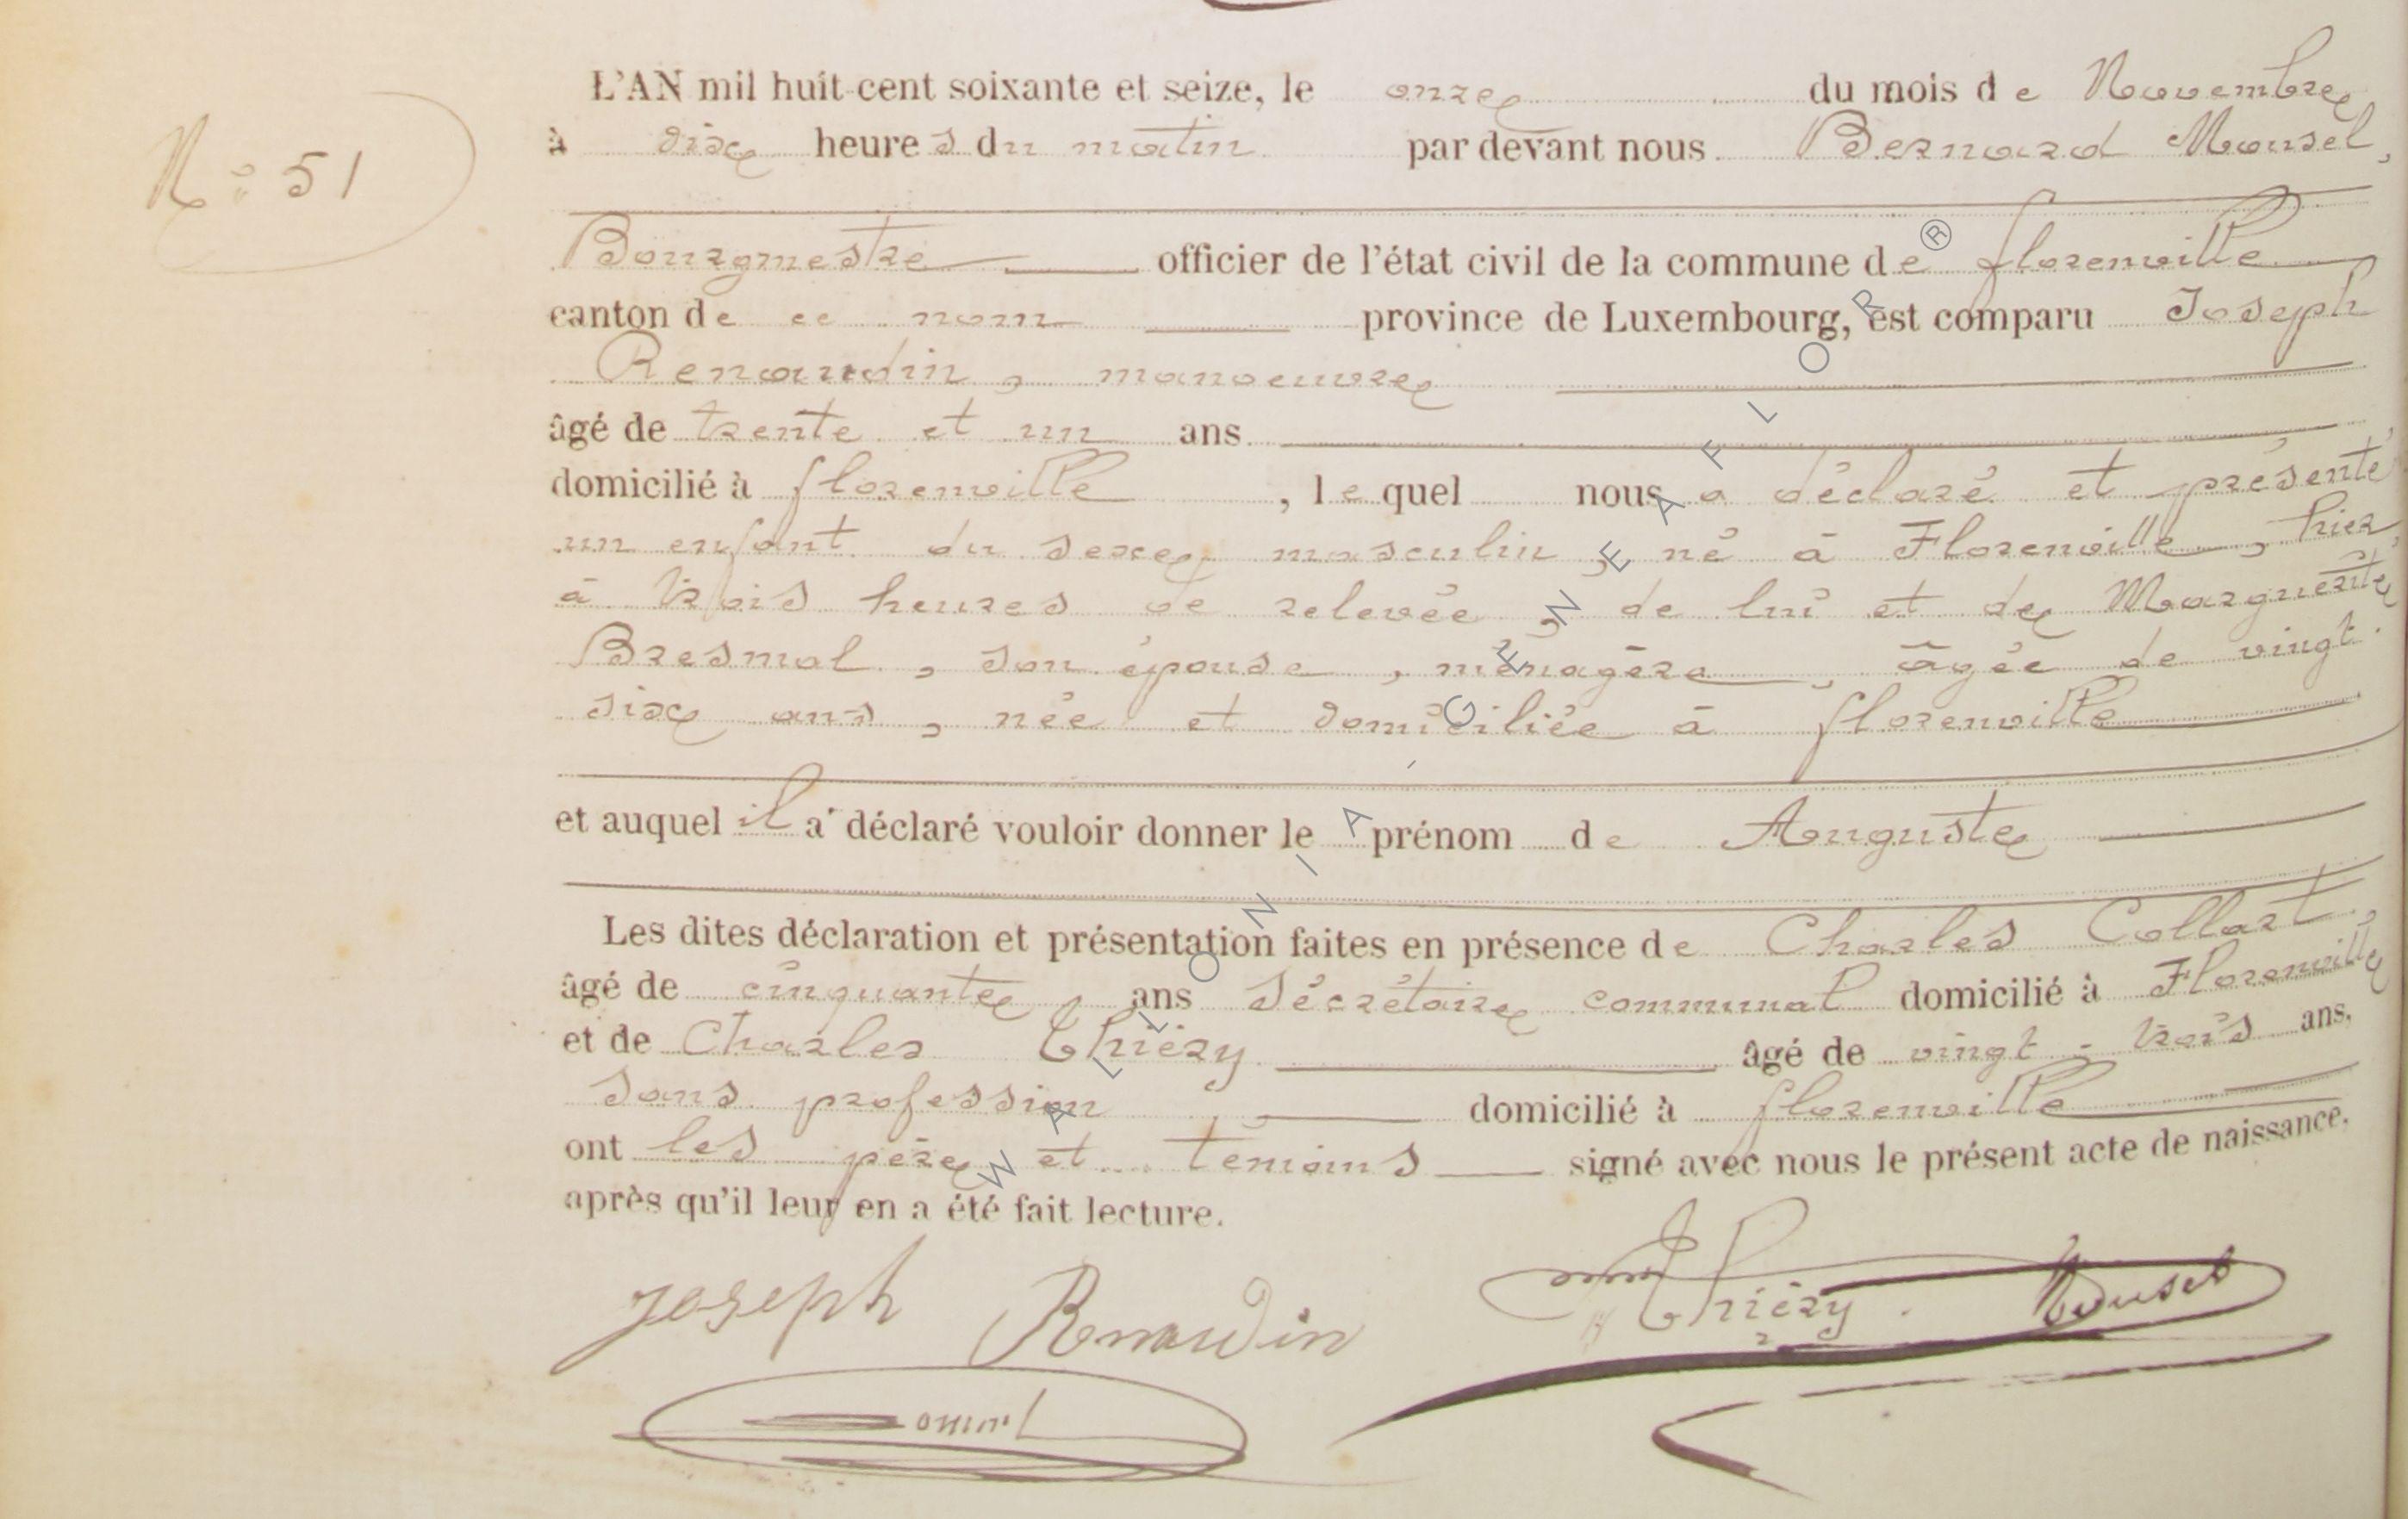 N° 51
L'AN mil huit cent soixante et seize, le onze du mois de Novembre
à dix heures du matin par devant nous Bernard Mousel,
Bourgmestre officier de l'état civil de la commune de florenville
canton de ce nom province de Luxembourg, est comparu Joseph
Renaudin, manoeuvre
âgé de trente et un ans
domicilié à florenville, lequel nous a déclaré et présenté
un enfant du sexe masculin, né à Florenville, hier,
à trois heures de relevée, de lui et de Marguerite
Bresmal, son épouse, ménagère, âgée de vingt-
six ans, née et domiciliée à florenville
et auquel il a déclaré vouloir donner le prénom de Auguste
Les dites déclaration et présentation faites en présence de Charles Collart,
âgé de cinquante, ans Sécrétaire communal domicilié à Florenville
et de Charles Thiéry âgé de vingt-trois ans,
sans profession, domicilié à florenville
ont les père et témoins signé avec nous le présent acte de naissance,
après qu'il leur en a été fait lecture.
Joseph Renaudin Thiéry. Mousel
WALLONIA, GENEAFLOR®